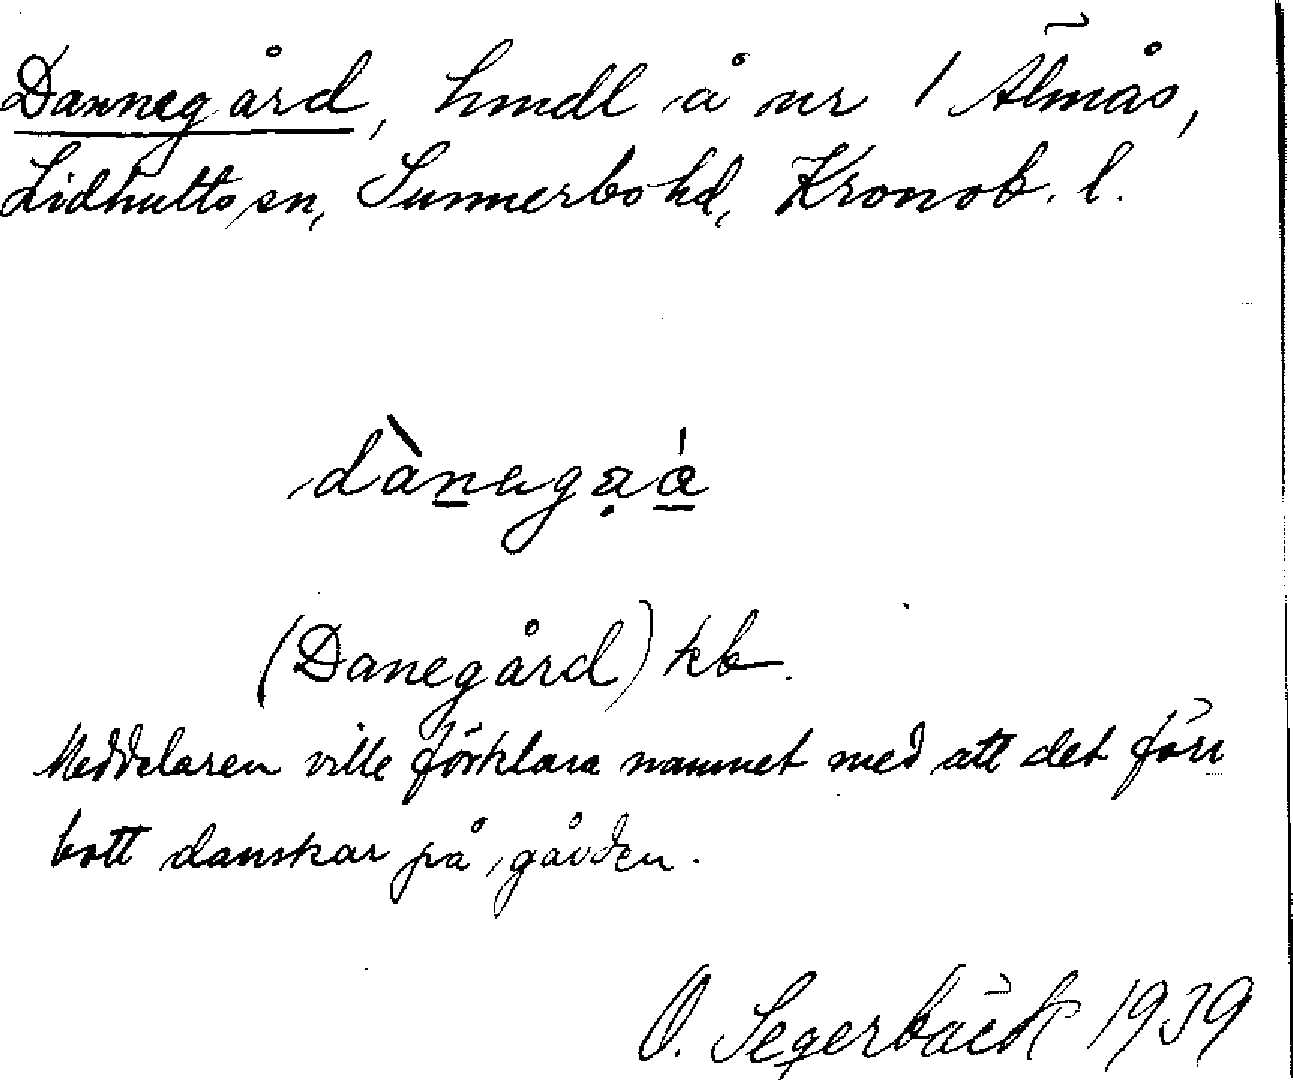 Dannegård, hmdl å nr 1 Älmås,
Lidhults sn, Sunnerbo hd, Kronob. l.
dànegaá
(Danegård) kb.
Meddelaren ville förklara namnet med att det förr
bott danskar på gården.
O. Segerbäck 1939